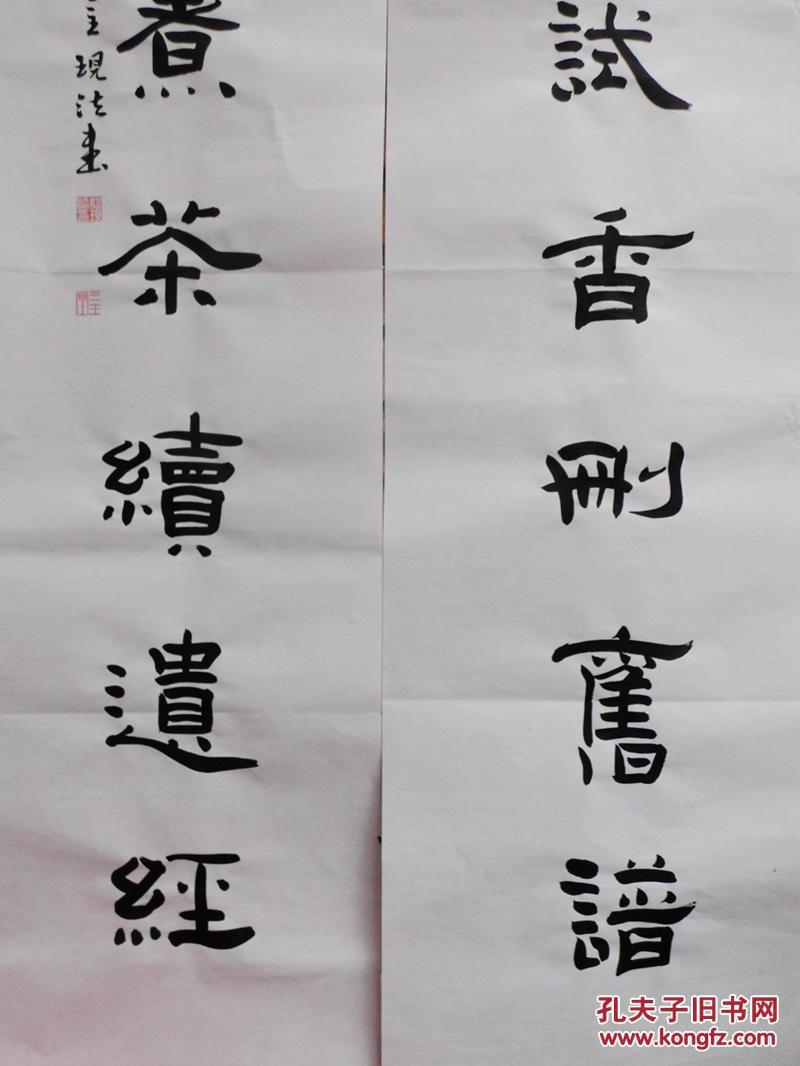 試香刪舊譜
煮茶續遺經
現法書
孔夫子旧书网
www.kongfz.com